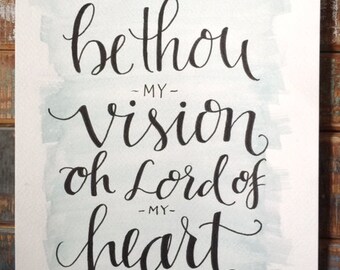 be thou
-MY-
vision
oh Lord of
-MY-
heart